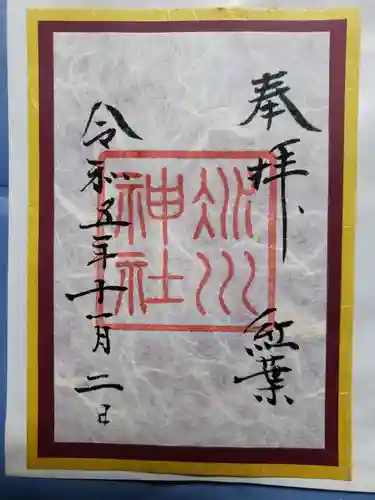 奉拝 紅葉
氷川
神社
令和五年十一月二日